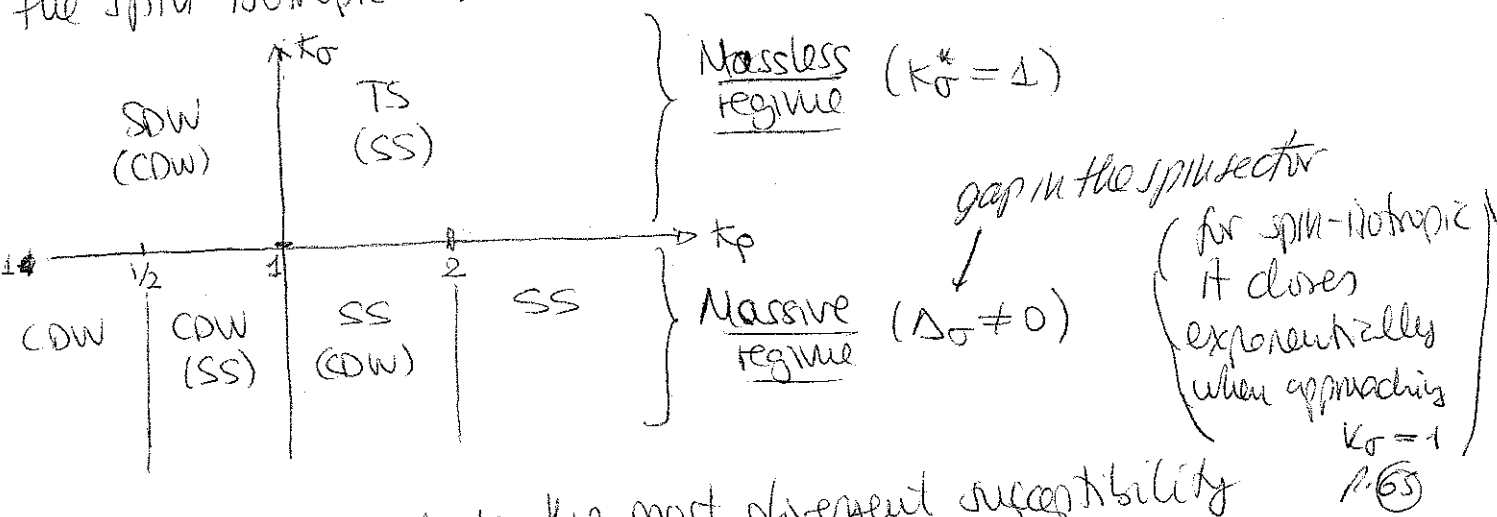 the spin isotropic
Kσ
SDW
(CDW)
TS
(SS)
Massless (Kσ* = 1)
regime
gap in the spin sector
Kρ
1
1/2
1
2
CDW
CDW
(SS)
SS
(CDW)
SS
Massive (Δσ ≠ 0)
regime
(for spin-isotropic
it closes
exponentially
when approaching
Kσ = 1)
p. 65
most divergent susceptibility